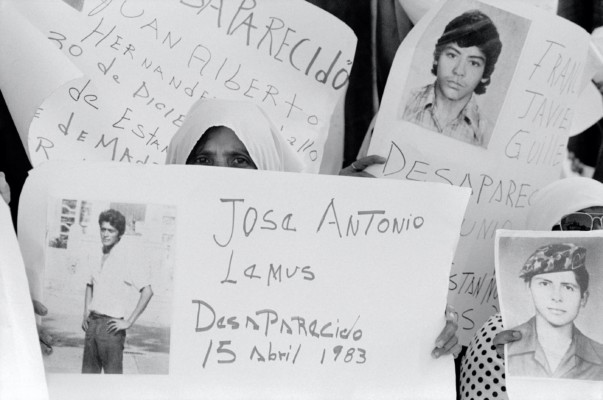 SAPARECIDO
JUAN ALBERTO
HERNANDE
20 de Dicie
de Estan
de Mad
FRAN
JAVIER
DESAPARE
JOSE ANTONIO
LAMUS
DESAPARECIDO
15 Abril 1983